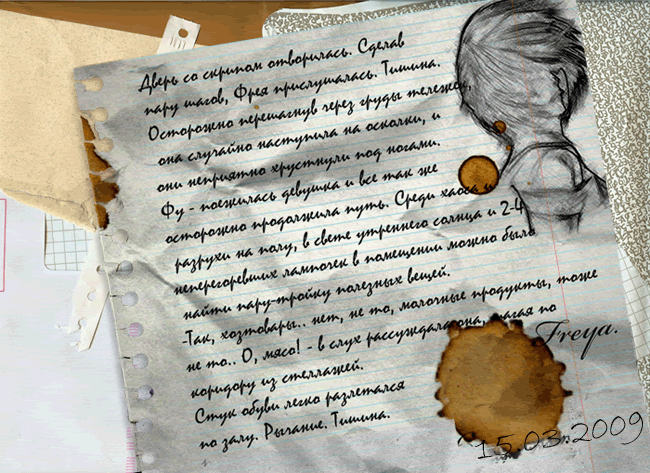 Дверь со скрипом отворилась. Сделав
пару шагов, Фрея прислушалась. Тишина.
Осторожно перешагнув через груды тележек,
она случайно наступила на осколки, и
они неприятно хрустнули под ногами.
Фу - поежилась девушка и все так же
осторожно продолжила путь. Среди хаоса и
разрухи на полу, в свете утреннего солнца и 2-4
неперегоревших лампочек в помещении можно было
найти пару-тройку полезных вещей.
-Так, хозтовары.. нет, не то, молочные продукты, тоже
не то.. О, мясо! - в слух рассуждала она, шагая по
коридору из стеллажей.
Стук обуви легко разлетался
по залу. Рычание. Тишина.
Freya.
15.03.2009